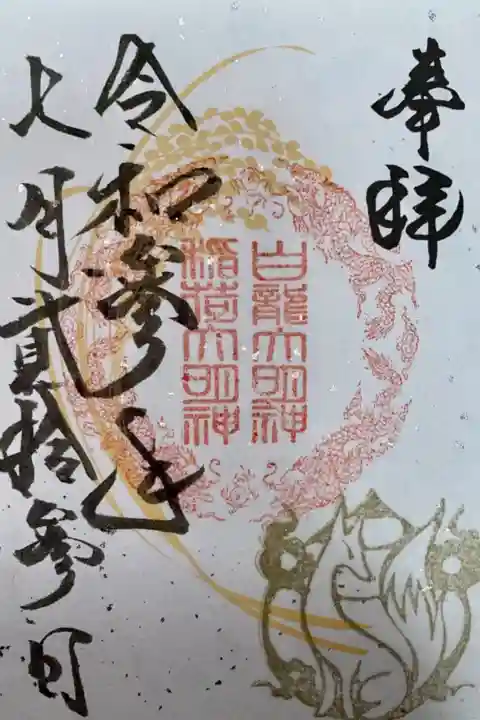 奉拝
白龍大明神
稲荷大明神
令和参年
七月貳拾参日